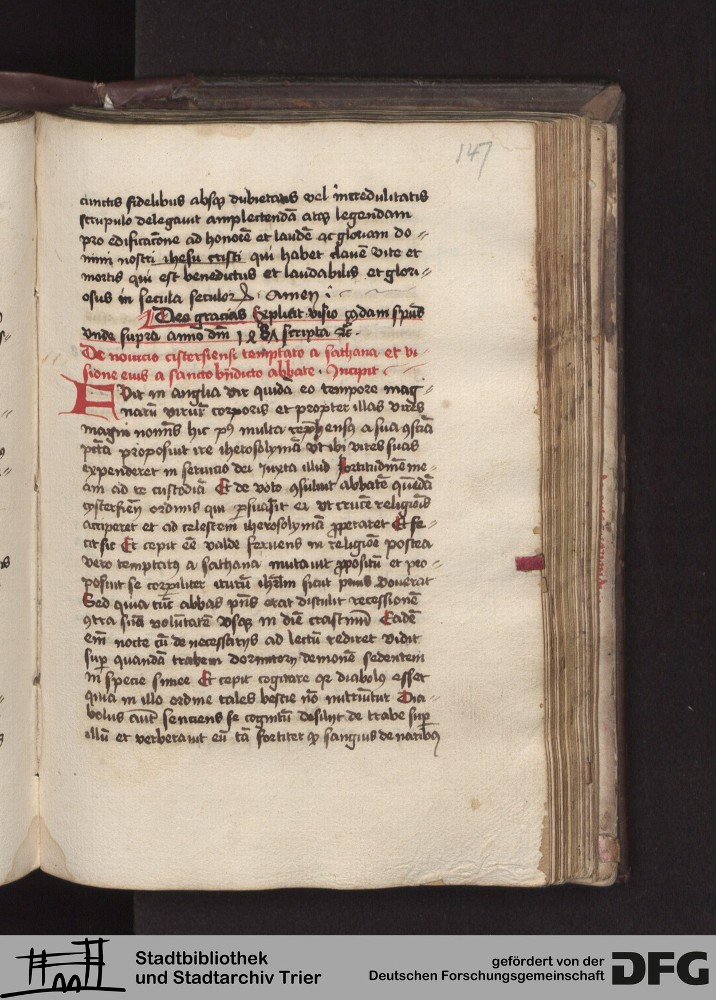 147
cunctis fidelibus absq dubietatis vel incredulitatis
scrupulo delegavit amplectendā atq legendam
pro edificacōne ad honorē et laudē ac gloriam do=
mini nostri ihesu cristi qui habet clavē vite et
mortis qui est benedictus et laudabilis et glori=
osus in secula seculoꝝ Amen
Deo gracias Explicit visio cꝰdam
vnde supra anno dm̄ scripta ꝛc̄
De novicio cisterciensi temptato a sathana et vi
sione eius a sancto bn̄dicto abbate Incipit
Fvit in anglia vir quidā eo tempore mag
narū viriū corporis et propter illas vires
magni nom̄is hic pꝰ multa a sua
proposuit ire iherosolymā vt ibi vires suas
expenderet in servicio dei iuxta illud fortitudinē me=
am ad te custodiā Et de voto ꝯsuluit abbatē quendā
cysterciēn ordinis qui ꝑsuasit ei vt crucē religiōis
acciperet et ad celestem iherosolymā ꝓperaret Et fe=
cit sic Et cepit eē valde fervens in religiōe postea
vero temptatꝰ a sathana mutavit ꝓpositū et pro=
posuit se corꝑaliter iturū ihrlm̄ sicut vouerat
Sed quia tūc abbas pn̄s erat distulit recessionē
ꝯtra suā volūtatē vsqꝫ in diē crastinū Eadē
em̄ nocte cū de necessarijs ad lectū rediret vidit
suꝑ quandā trabem dormitorij demonē sedentem
in specie simee Et cepit cogitare qꝛ diabolꝰ esset
quia in illo ordine tales bestie nō nutriūtur Dia=
bolus aūt senciens se cognitū desilijt de trabe suꝑ
illū et verberavit eū tā fortiter ꝙ sangius de naribꝰ
Stadtbibliothek
und Stadtarchiv Trier
gefördert von der
Deutschen Forschungsgemeinschaft
DFG